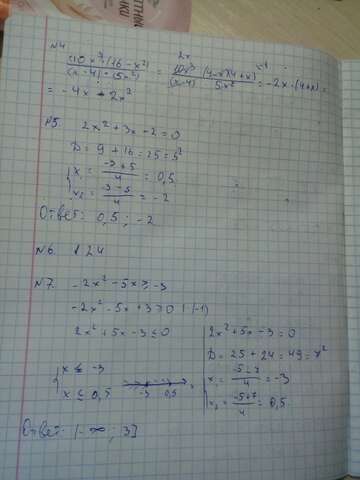 №4
(10x³(16-x²))/((x-4)·(5x²)) = (10x³ (4-x)(4+x))/((x-4) 5x²) = -2x·(4+x) =
= -4x - 2x²
№5. 2x²+3x-2=0
D = 9+16=25=5²
x₁ = (-3+5)/4 = 0,5
x₂ = (-3-5)/4 = -2
Ответ: 0,5 ; -2
№6. 124
№7. -2x²-5x ≥ -3
-2x²-5x+3≥0 | (-1)
2x²+5x-3≤0
2x²+5x-3=0
D=25+24=49=7²
x₁ = (-5-7)/4 = -3
x₂ = (-5+7)/4 = 0,5
x ≤ -3
x ≤ 0,5
-3 0,5
Ответ: (-∞ ; 3]